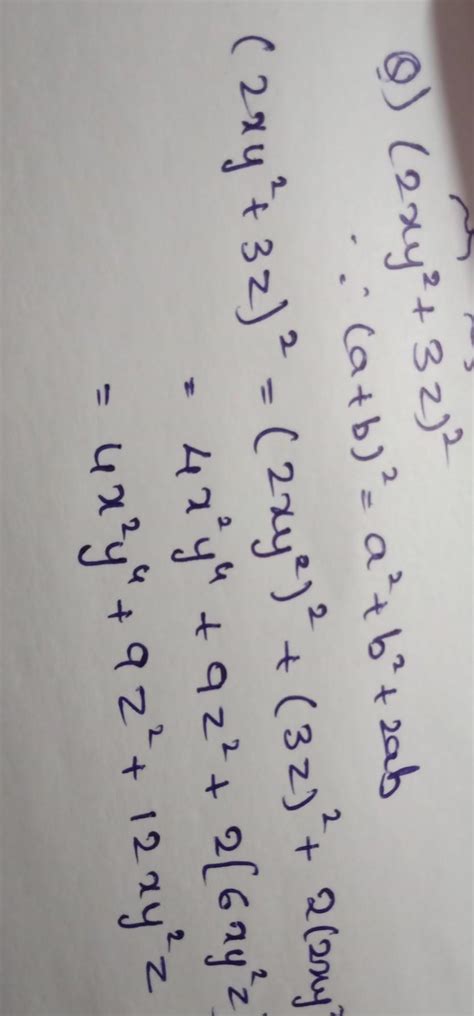 Q) (2xy² + 3z)²
∵ (a+b)² = a² + b² + 2ab
(2xy² + 3z)² = (2xy²)² + (3z)² + 2(2xy²
= 4x²y⁴ + 9z² + 2(6xy²z
= 4x²y⁴ + 9z² + 12xy²z